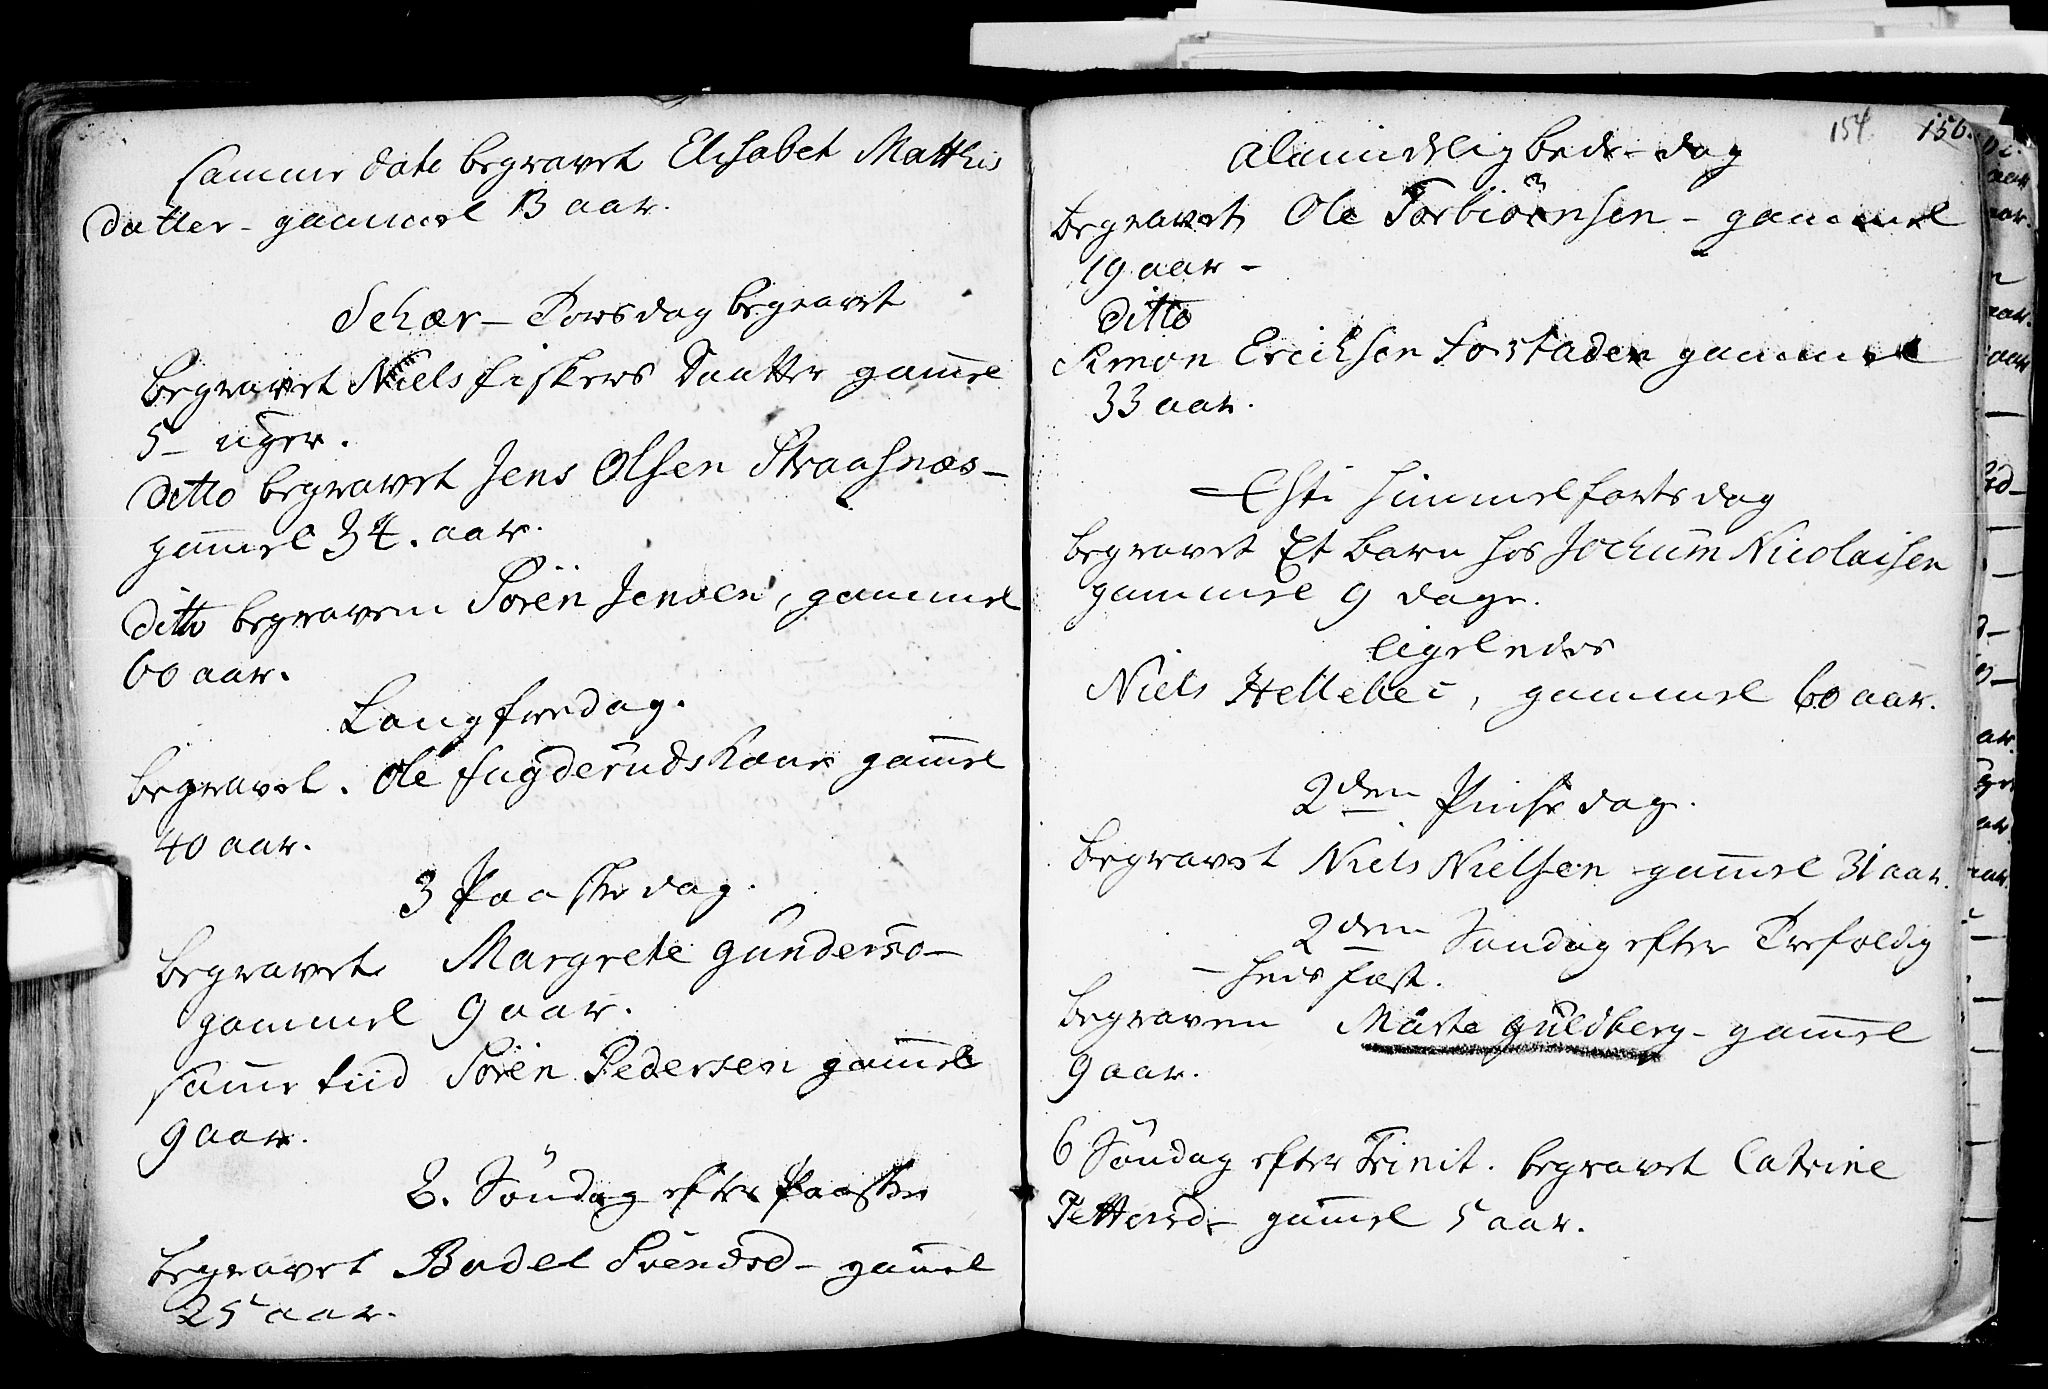 samme dato begravet Elisabet Matthis
datter - gammel 13 aar.
Schær - Torsdag begravet
begravet Niels fiskers Daatter gam̅el
5 - uger.
ditto begravet Jens Olsen Straasnæs -
gam̅el 34. aar.
ditto begraven Sören Jensen, gammel
60 aar.
Langfredag.
begravet. Ole fugderuds Kone gam̅el
40 aar.
3 Paaskedag.
begravet Margrete Gundersd -
gammel 9 aar.
sam̅e tiid Sören Pedersen gam̅el
9 aar.
2. Söndag efter Paaske
begravet Bodel Svendsd - gam̅el
25 aar.
154 156.
Alamindelig bede-dag
begravet Ole Torbiörnsen - gammel
19 aar -
ditto
Simon Ericksen gammel
33 aar.
Chsti Himmelfartsdag
begravet Et barn hos Jochum Nicolaisen
gammel 9 dage.
ligeledes
Niels Hellebec, gammel 60 aar.
2den Pinsedag.
begravet Niels Nielsen gam̅el 31 aar.
2den Söndag efter Trefoldig
- heds fæst.
begraven Marte Guldberg - gam̅el
9 aar.
6 Söndag efter Trinit. begravet Catrine
Pettersd - gam̅el 5 aar.